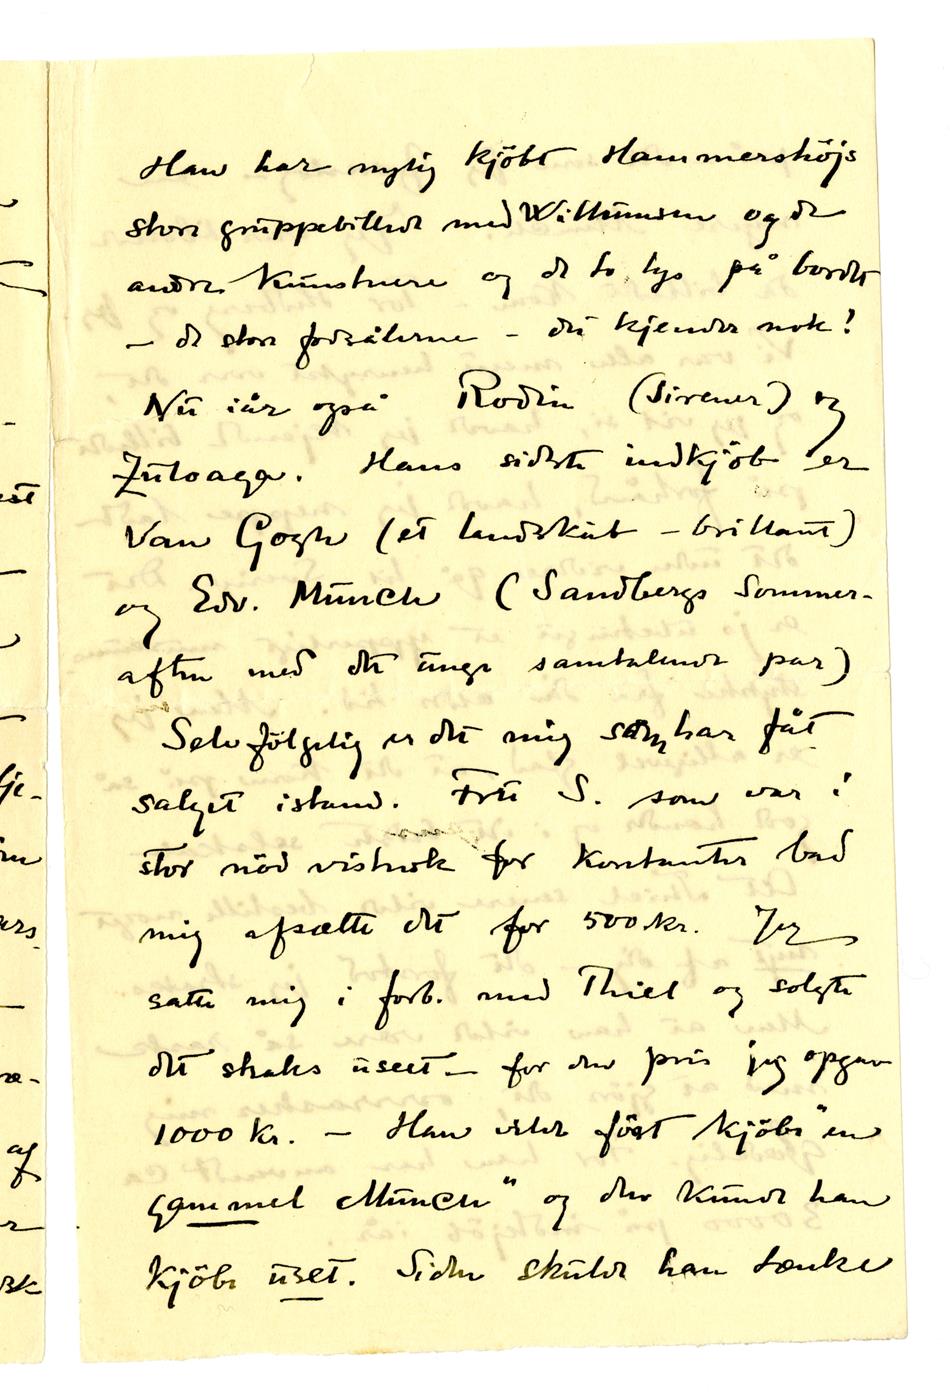 Han har nylig kjöbt Hammershöjs
store gruppebillede med Willumsen og de
andre kunstnere og de to lys på bordet
– de store fodsålerne – du kjender nok!
Nu iår også Rodin (Sirener) og
Zuloaga. Hans sidste indkjöb er
Van Gogh (et landskab – brillant)
og Edv. Munch (Sandbergs Sommer-
aften med det unge samtalende par)
Selvfölgelig er det mig som har fåt
salget istand. Fru S. som var i
stor nöd vistnok for kontanter bad
mig afsætte det for 500 kr. Jeg
satte mig i forb. med Thiel og solgte
det straks useet – for den pris jeg opgav
1000 kr. – Han vilde först kjöbe "en
gammel Munch" og den kunde han
kjöbe uset. Siden skulde han tænke
est
af